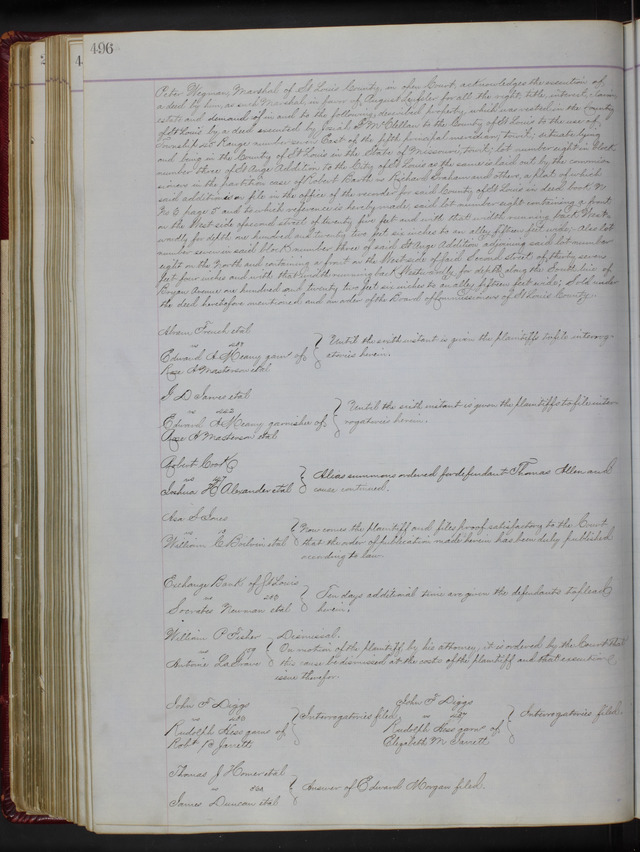 496
Peter Wegman, Marshal of St Louis County, in open Court, acknowledges the execution of
a deed by him, as such Marshal, in favor of August for all the right, title, interest, claim,
estate and demand of in and to the following described property, which was vested in the County
of St Louis by a deed executed by Josiah McClellan to the County of St Louis to the use of
Township Range number seven East of the fifth principal meridian, to wit, situate lying
and being in the County of St Louis in the State of Missouri, to wit: lot number eight in block
number three of St Ange Addition to the City of St Louis as the same is laid out by the commis
sioners in the partition case of Robert Barth vs Richard Graham and others, a plat of which
said addition is on file in the office of the recorder for said County of St Louis in deed book
No 3 page 5 and to which reference is hereby made; said lot number eight containing a front
on the West side of second street of twenty five feet and with that width running back West-
wardly for depth one hundred and twenty two feet six inches to an alley fifteen feet wide; Also lot
number seven in said block number three of said St Ange Addition adjoining said lot number
eight on the North and containing a front on the West side of said Second Street of thirty seven
feet four inches and with that width running back Westwardly for depth along the South line of
Bogan Avenue one hundred and twenty two feet six inches to an alley fifteen feet wide; Sold under
the deed heretofore mentioned and an order of the Board of Commissioners of St Louis County.
Abram French et al
vs
Edward A Meany garn of
Rose A Masterson et al
Until the sixth instant is given the plaintiffs to file interrog-
atories herein.
J D James et al
vs
Edward A Meany garnishee of
Rose A Masterson et al
Until the sixth instant is given the plaintiffs to file inter
rogatories herein.
Robert Cook
vs
Joshua H Alexander et al
Alias summons ordered for defendant Thomas Allen and
cause continued.
Asa S Jones
vs
William C et al
Now comes the plaintiff and files proof satisfactory to the Court,
that the order of publication made herein has been duly published
according to law.
Exchange Bank of St Louis
vs
Socrates Newman et al
Ten days additional time are given the defendants to plead
herein.
William P Fisher
vs
Antoine LaGrave
Dismissal.
On motion of the plaintiff, by his attorney, it is ordered by the Court that
this cause be dismissed at the costs of the plaintiff and that execution
issue therefor.
John F Diggs
vs
Rudolph Hess garn of
Robt B Jarrett
Interrogatories filed.
John F Diggs
vs
Rudolph Hess garn of
Elizabeth M Jarrett
Interrogatories filed.
Thomas J Homer et al
vs
James Duncan et al
Answer of Edward Morgan filed.